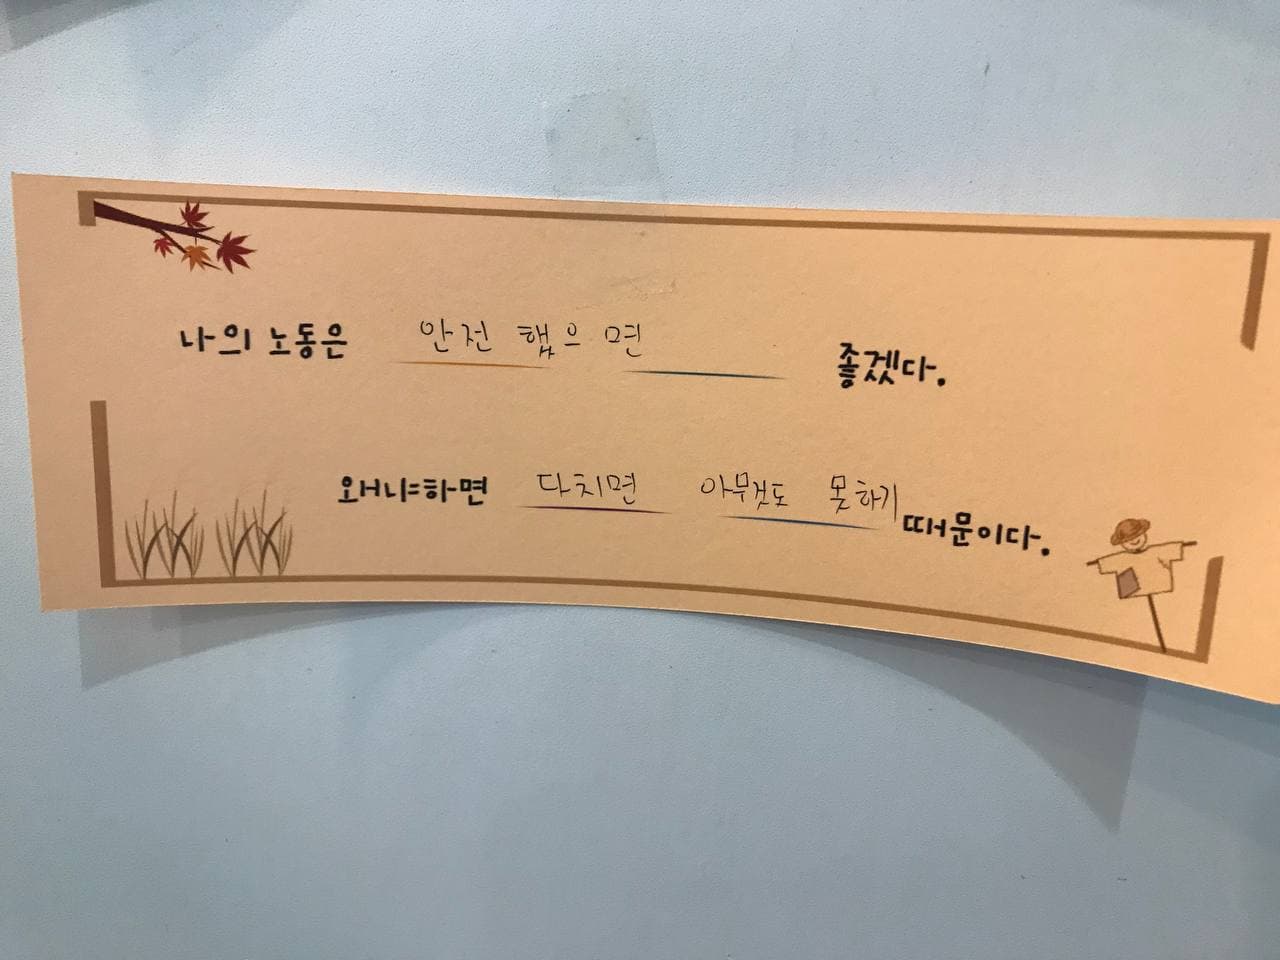 나의 노동은 안전 햅으면 좋겠다.
왜냐하면 다치면 아무것도 못하기 때문이다.